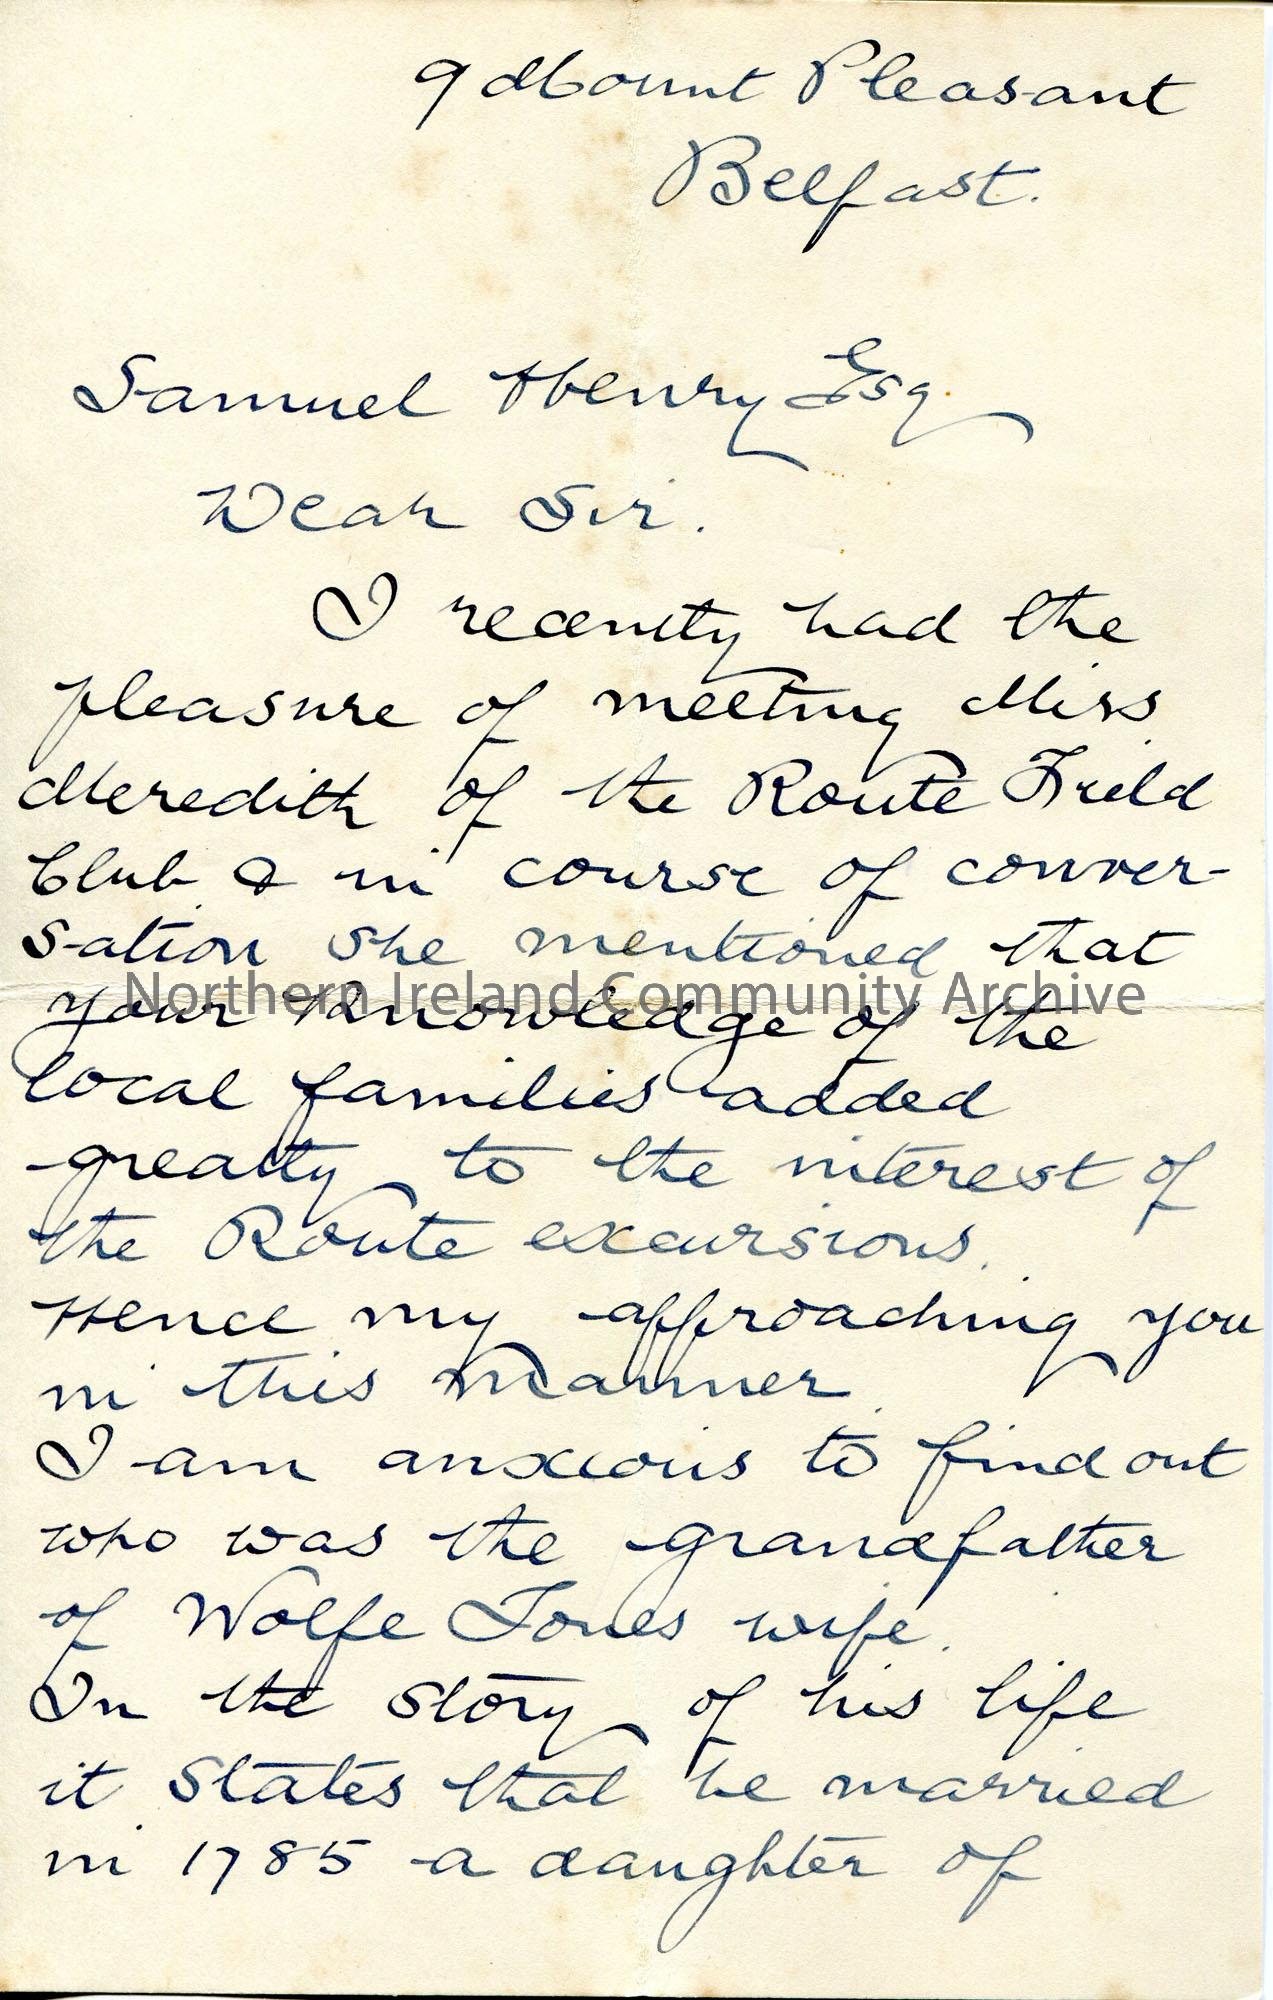 9 Mount Pleasant
Belfast.
Samuel Henry Esq.
Dear Sir.
I recently had the
pleasure of meeting Miss
Meredith of the Route Field
Club & in course of conver-
sation she mentioned that
Northern Ireland Community Archive
your knowledge of the
local families added
greatly to the interest of
the Route excursions.
Hence my approaching you
in this manner.
I am anxious to find out
who was the grandfather
of Wolfe Tones wife.
In the story of his life
it states that he married
in 1785 a daughter of